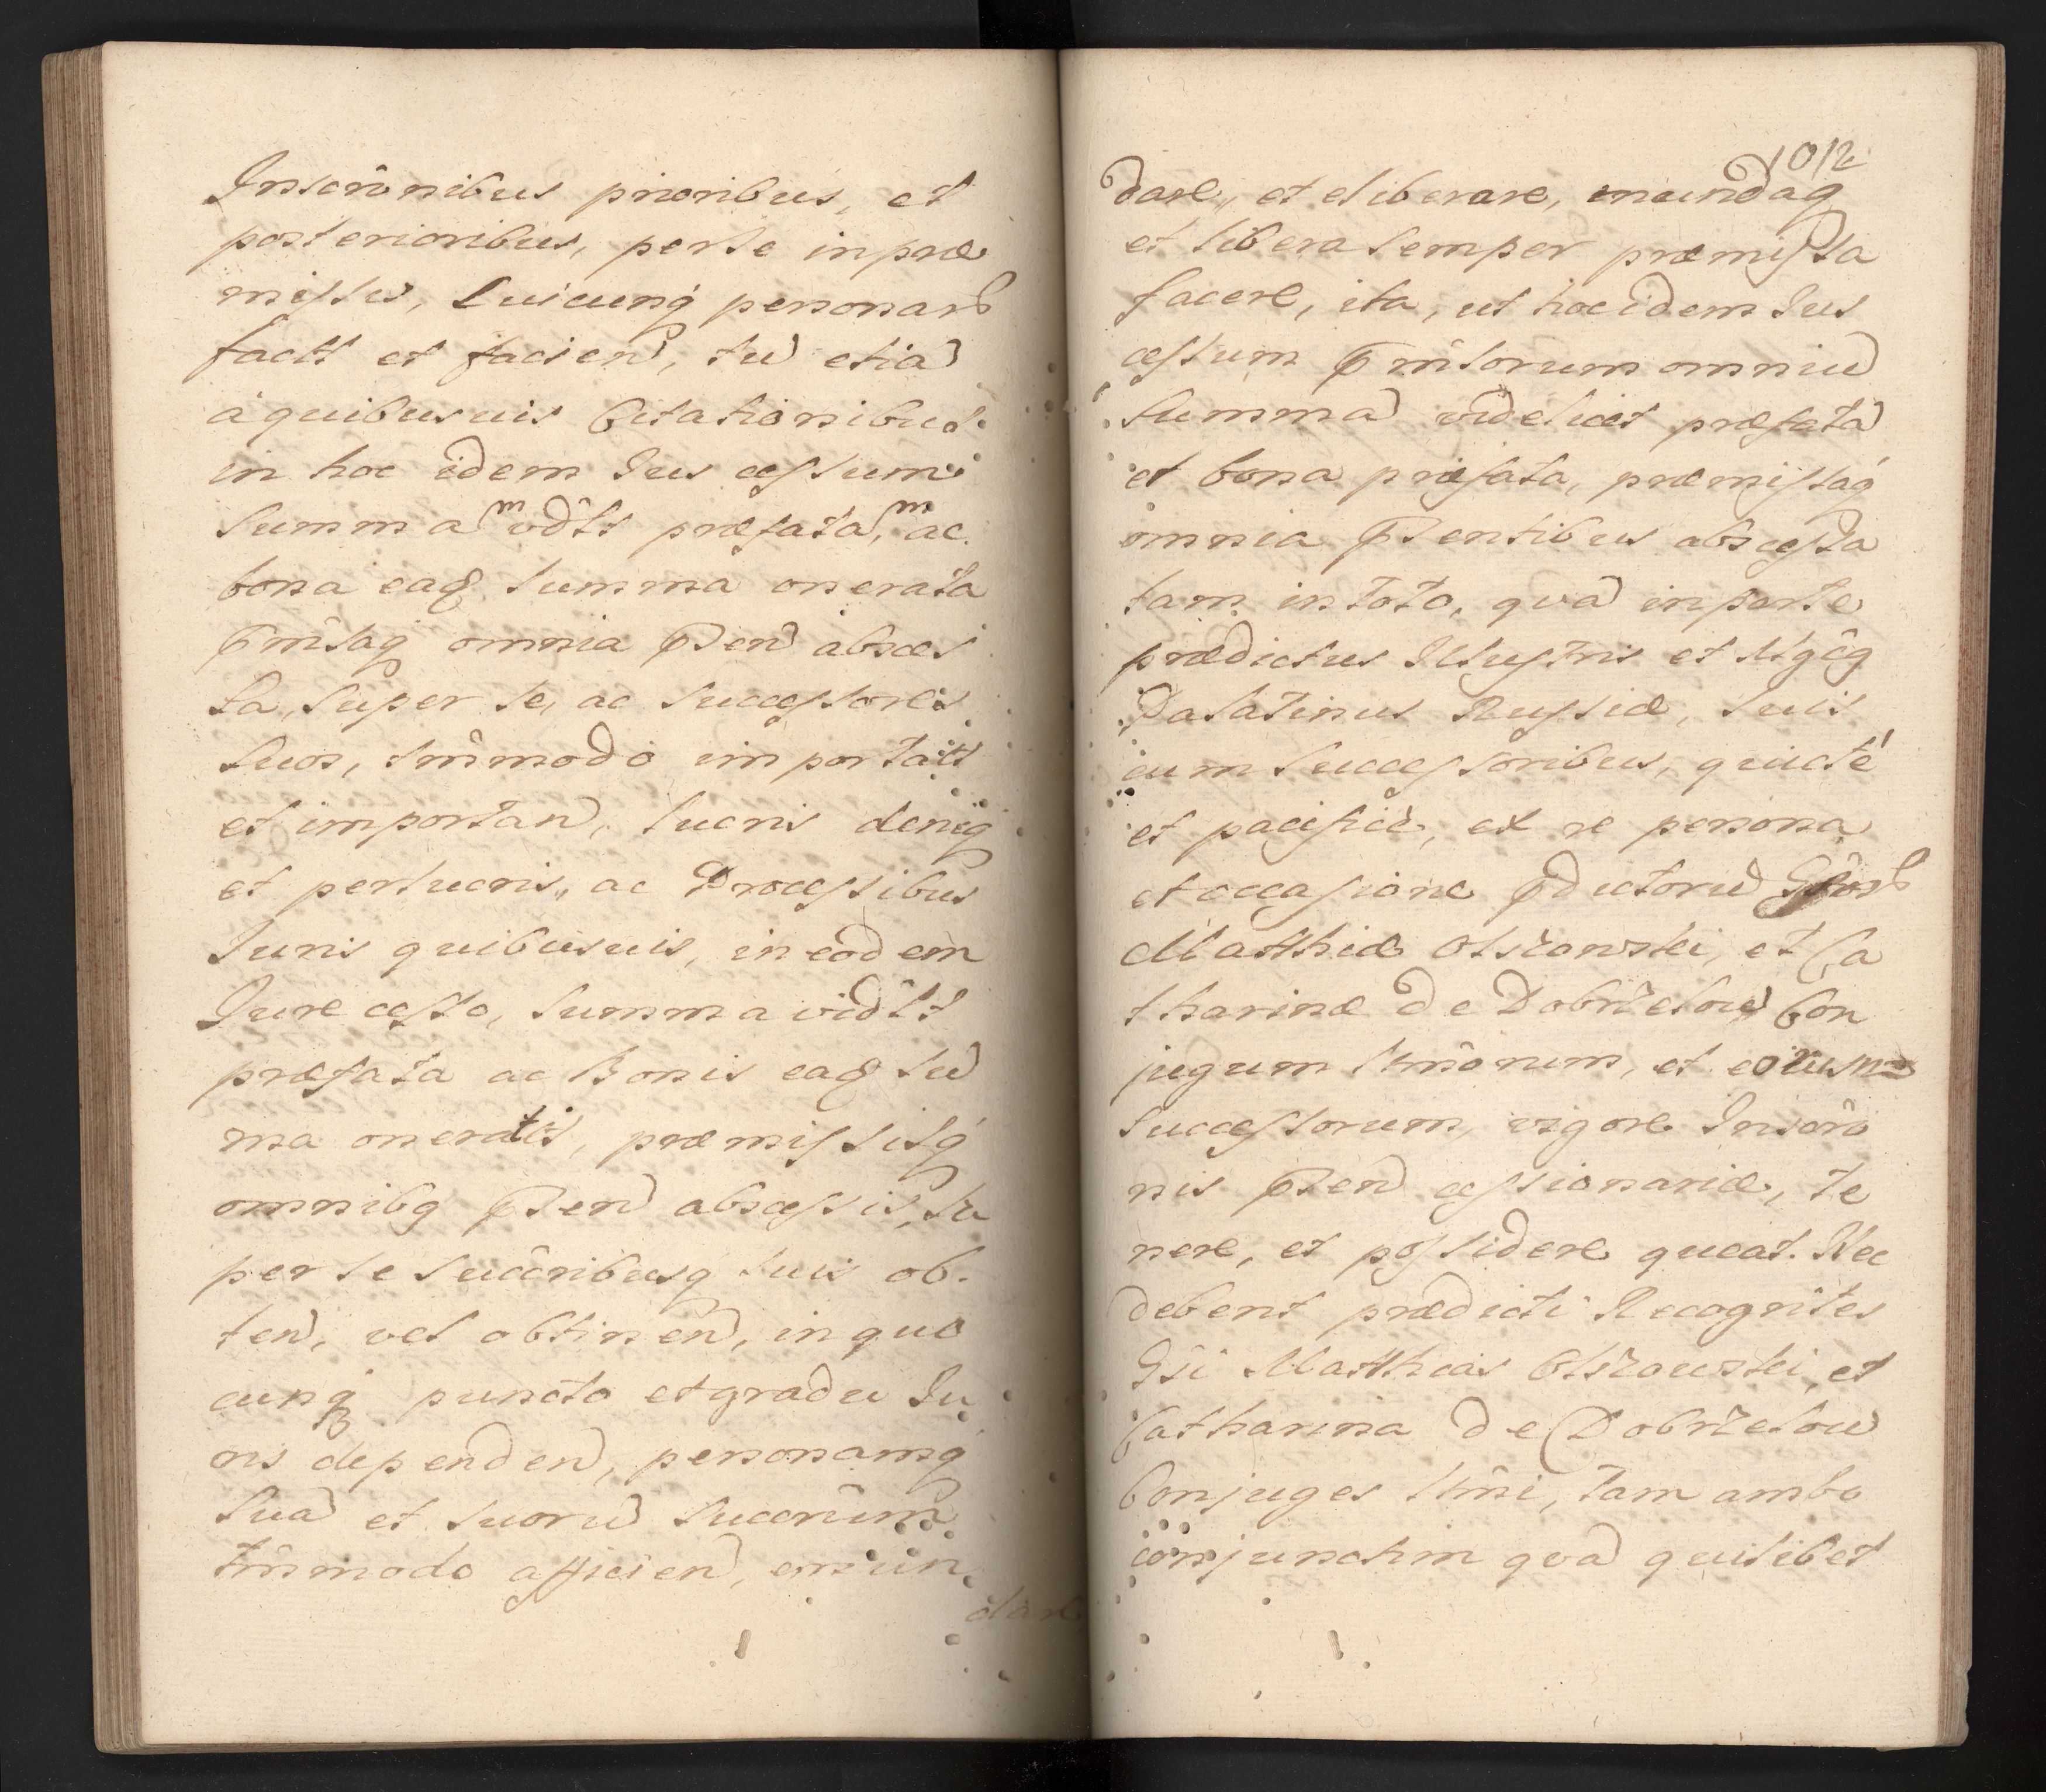 Inscrõnibus prioribus, et
posterioribus, per se in præ
missis, Cuicunq́ personarũ
factt et facien̄, tũ etiã
à quibusuis Citationibus
in hoc idem Jus cessum
Summaᵐ vdt̂t præfata,ᵐ ac
bona eaq́ summa onerata
pm̂saq́ omnia pñten̄ absces
sa, super se, ac successores
suos, tm̂modo importatt
et importan̄, lucris deniq́
et perlucris, ac Processibus
Juris quibusuis, in eodem
Jure cesso, summa vidt̂t
præfata ac Bonis eaq́ sũ
ma oneratis, præmissisq́
omnibq́ pñten̄ abscessis, su
per se succ̃ribusq́ suis ob
ten̄, vel obtinen̄, in quo
cunq́ puncto et gradu Ju
ris dependen̄, personamq́
suã et suorũ succrũm
tm̂modo afficien̄, emun
dare
1012
dare, et eliberare, mundaq́
et libera semper præmissa
facere, ita, ut hoc idem Jus
cessum pm̂ssorum omniũ
summã videlicet præfatã
et bona præfata, præmissaq́
omnia pñtentibus abscessa
tam in toto, qvã in parte
prædictus Illustris et Mgĉq́
Palatinus Russiæ, suis
cum successoribus, quietè
et pacificè, ex re persona
et occasione pdictorũ Gs̃orũ
Matthiæ Olszowski, et Ca
tharinæ de Dobrzelow Con
jugum ltm̂orum, et eorum
successorum, vigore Inscrõ
nis pñten̄ cessionariæ, te
nere, et possidere queat. Nec
debent prædicti Recogñtes
Gs̃i Matthias Olszowski, et
Catharina de Dobrzelow
Conjuges ltm̂i, tam ambo
conjunctim qvã quilibet